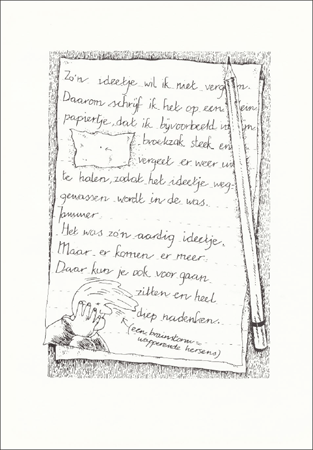 Zo'n ideetje wil ik niet
Daarom schrijf ik het op een
papiertje, dat ik bijvoorbeeld
broekzak steek en
vergeet er weer
te halen, zodat het ideetje weg-
gewassen wordt in de was.
Jammer.
Het was zo'n aardig ideetje.
Maar er komen er meer.
Daar kun je ook voor gaan
zitten en heel
diep nadenken.
(een brainstorm =
wapperende hersens)